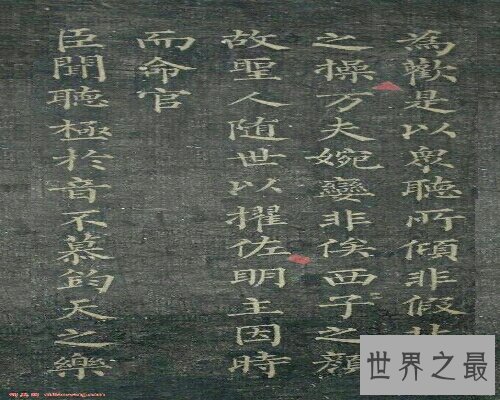 為歡是以衆聽所傾非假北
之操万夫婉孌非俟西子之顏
故聖人随世以擢佐明主因時
而命官
臣聞聽極於音不慕鈞天之樂
世界之最